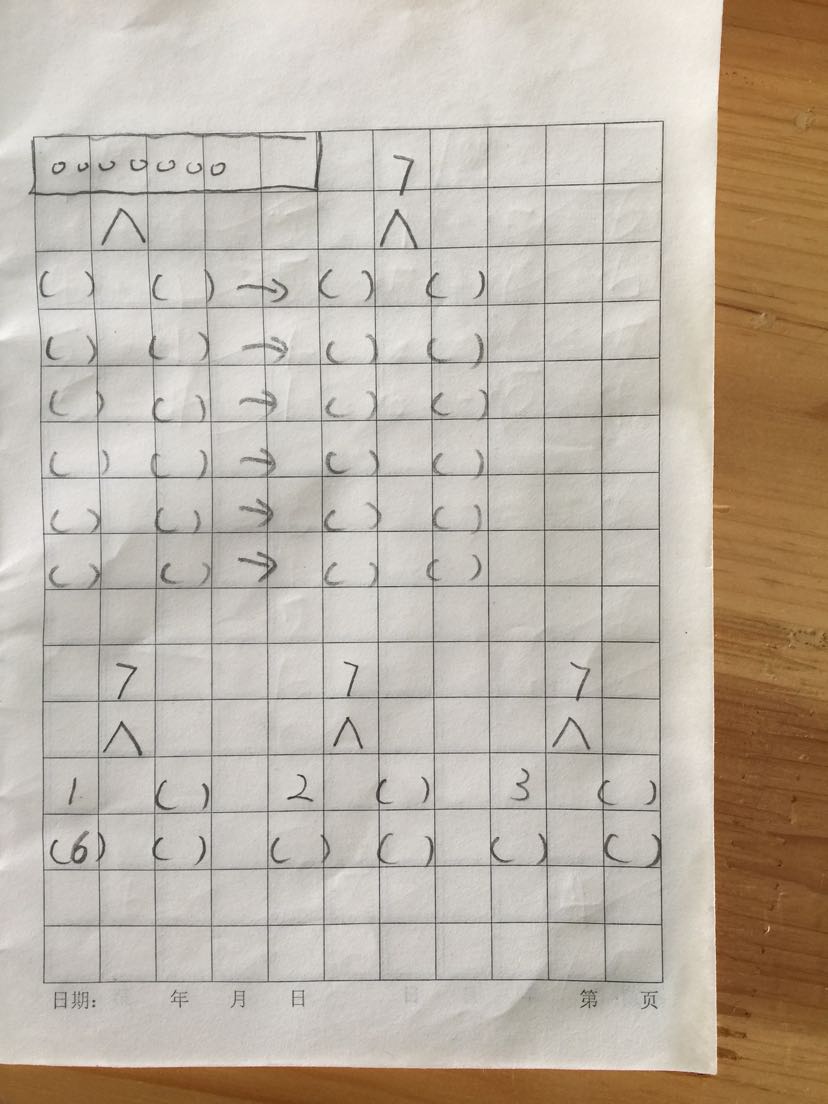 ooooooo 7
∧ ∧
( ) ( ) → ( ) ( )
( ) ( ) → ( ) ( )
( ) ( ) → ( ) ( )
( ) ( ) → ( ) ( )
( ) ( ) → ( ) ( )
( ) ( ) → ( ) ( )
7 7 7
∧ ∧ ∧
1 ( ) 2 ( ) 3 ( )
(6) ( ) ( ) ( ) ( ) ( )
日期: 年 月 日 第 页